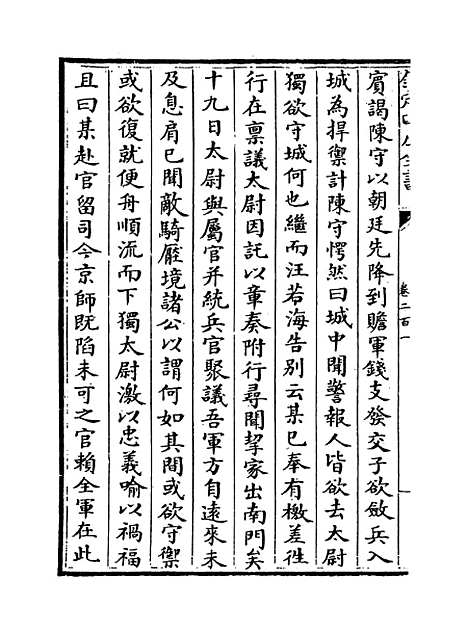 欽定四庫全書
卷二百一
賔謁陳守以朝廷先降到贍軍錢支發交子欲斂兵入
城為捍禦計陳守愕然曰城中聞警報人皆欲去太尉
獨欲守城何也繼而汪若海告别云某已奉有檄差徃
行在禀議太尉因託以章奏附行尋聞挈家出南門矣
十九日太尉與屬官并統兵官聚議吾軍方自逺來未
及息肩已聞敵騎壓境諸公以謂何如其間或欲守禦
或欲復就便舟順流而下獨太尉激以忠義喻以禍福
且曰某赴官留司今京師既陷未可之官賴全軍在此